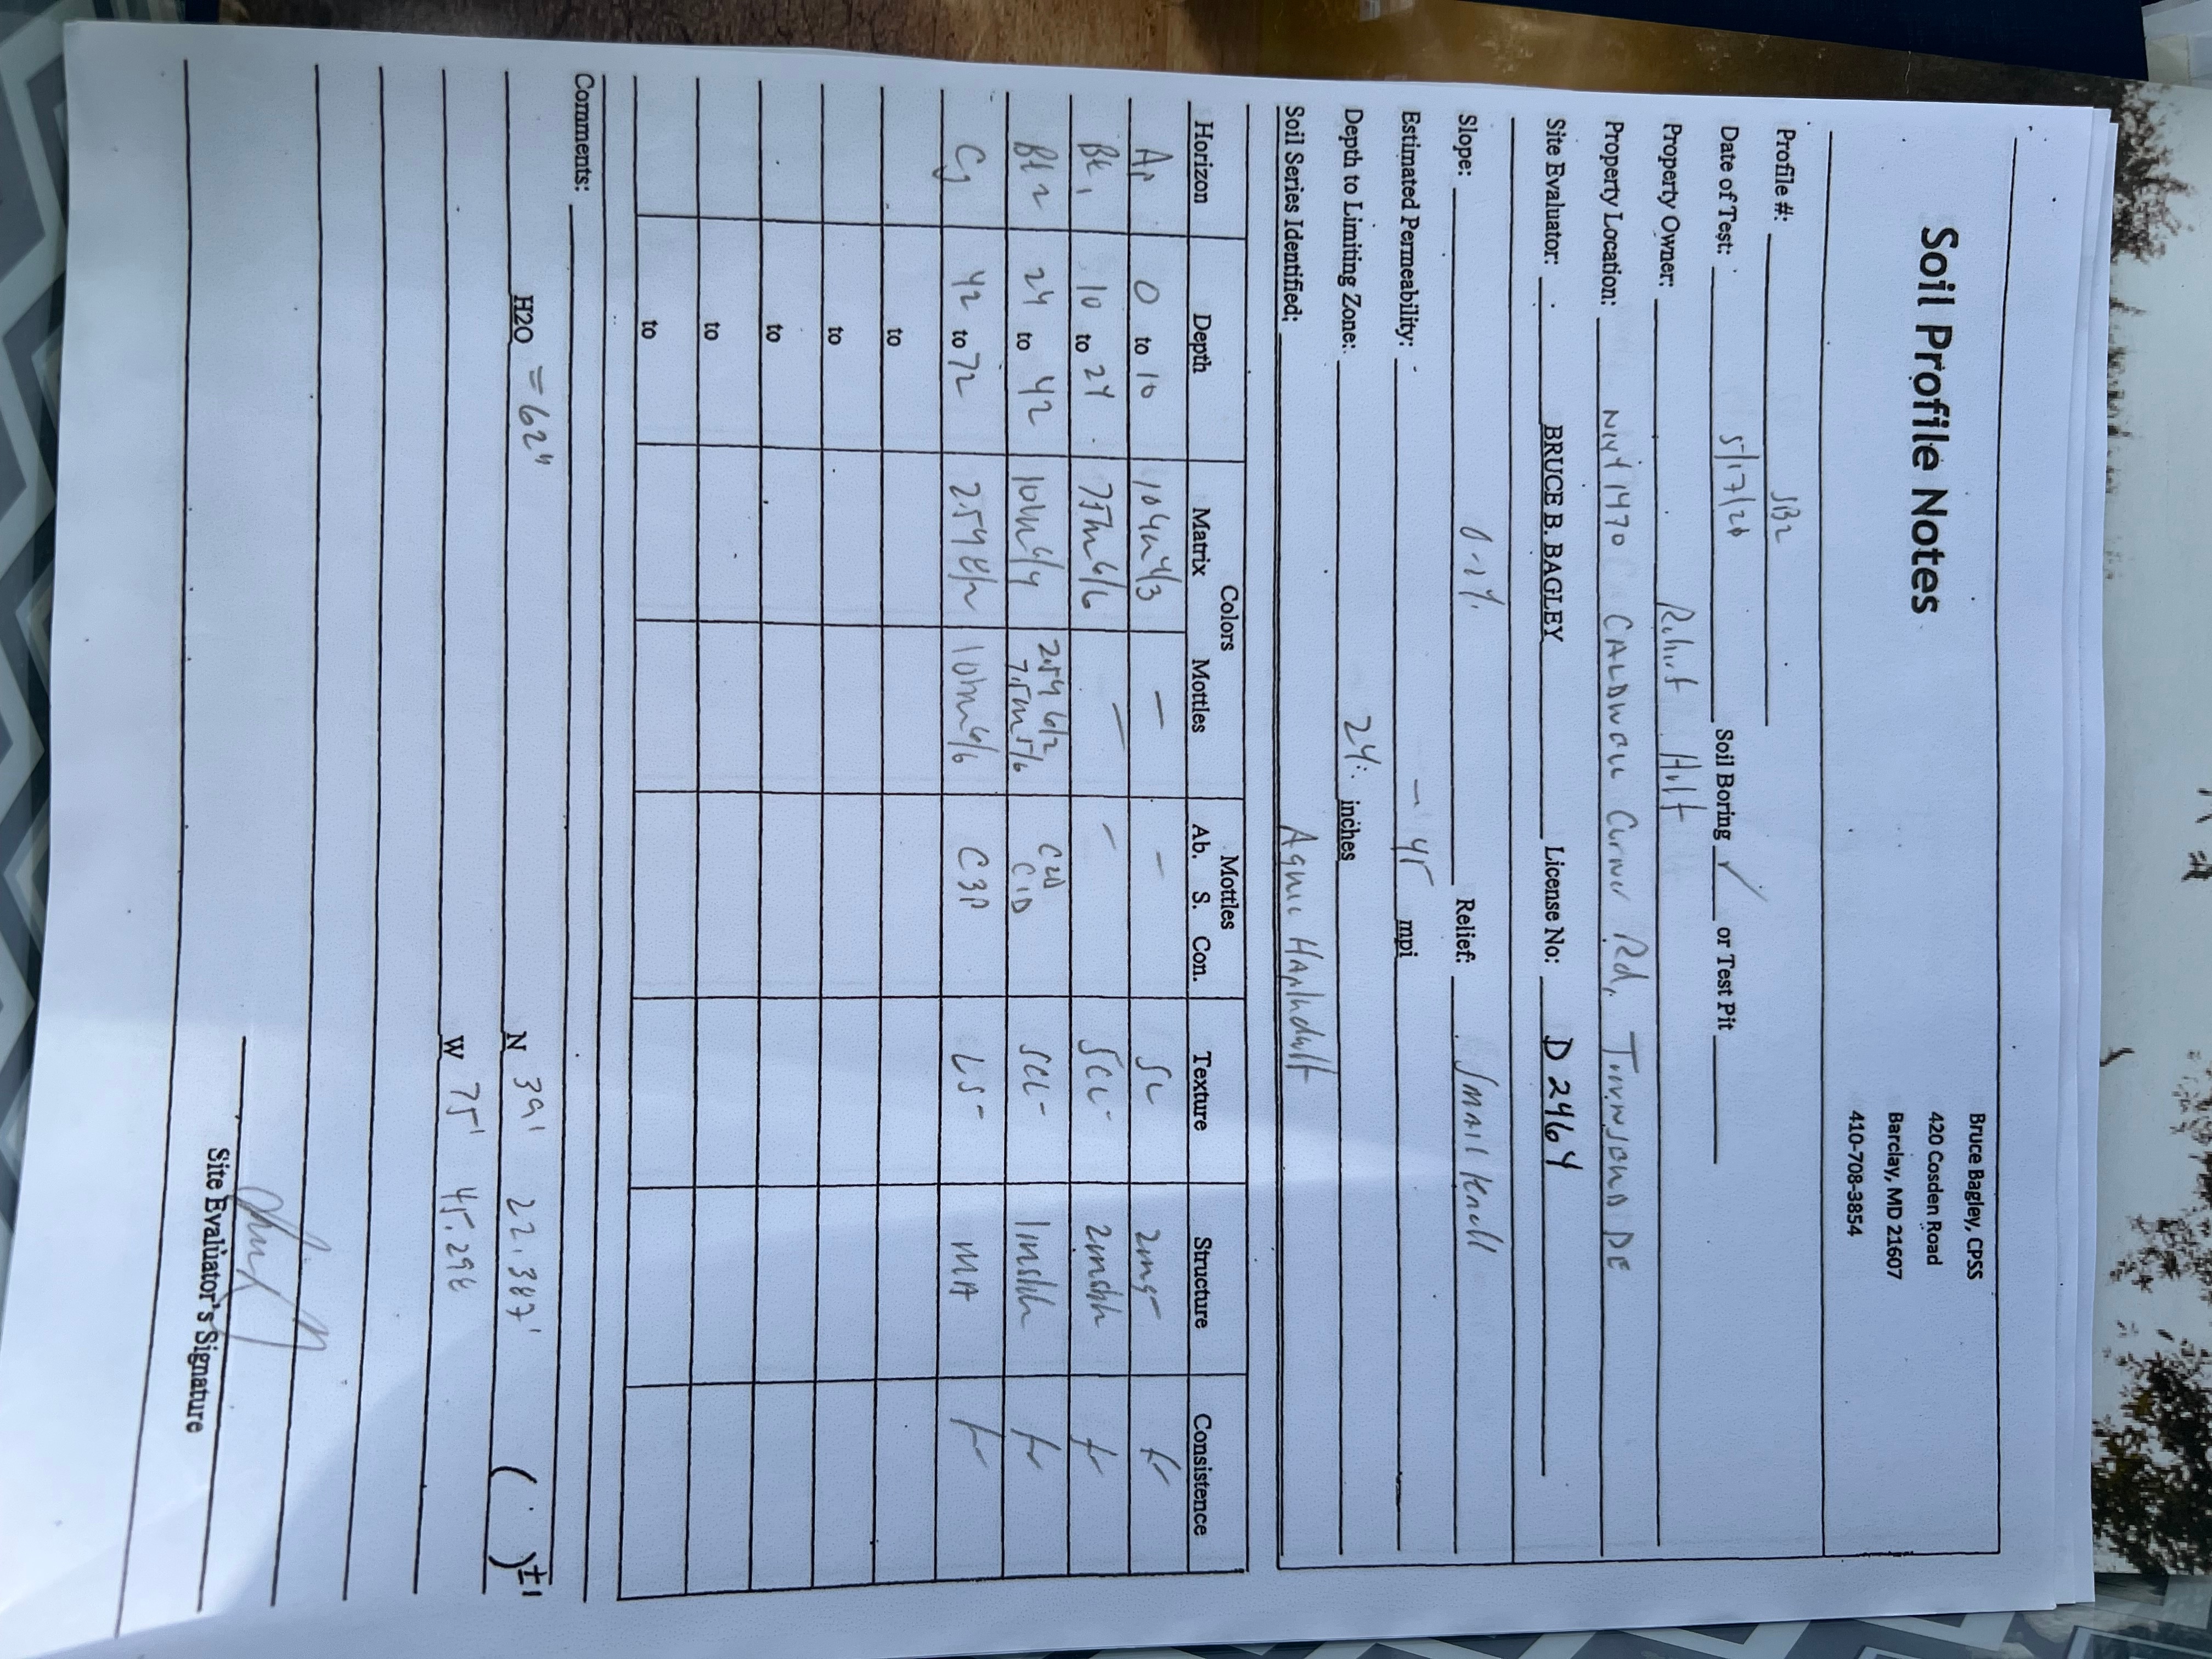 Soil Profile Notes
Bruce Bagley, CPSS
420 Cosden Road
Barclay, MD 21607
410-708-3854
Profile #: SB2
Date of Test: 5/17/20 Soil Boring ✓ or Test Pit
Property Owner: Robert Hult
Property Location: Next 1470 CALDWELL Corner Rd, TOWNSEND DE
Site Evaluator: BRUCE B. BAGLEY License No: D 2464
Slope: 0-2% Relief: Small knoll
Estimated Permeability: 45 mpi
Depth to Limiting Zone: 24 inches
Soil Series Identified: Aquic Hapludult
Colors Mottles
Horizon Depth Matrix Mottles Ab. S. Con. Texture Structure Consistence
Ap 0 to 10 10YR 4/3 — - SL 2mgr fr
Bt1 10 to 24 7.5YR 6/6 — - SCL- 2msbk fr
Bt2 24 to 42 10YR 6/4 2.5Y 6/2 7.5YR 5/6 C2D C1D SCL- 1msbk fr
Cg 42 to 72 2.5Y 8/2 10YR 6/6 C3P LS- MA fr
to
to
to
to
to
Comments:
H2O = 62" N 39' 22.387' ( ) ±1
W 75' 45.298
Site Evaluator's Signature